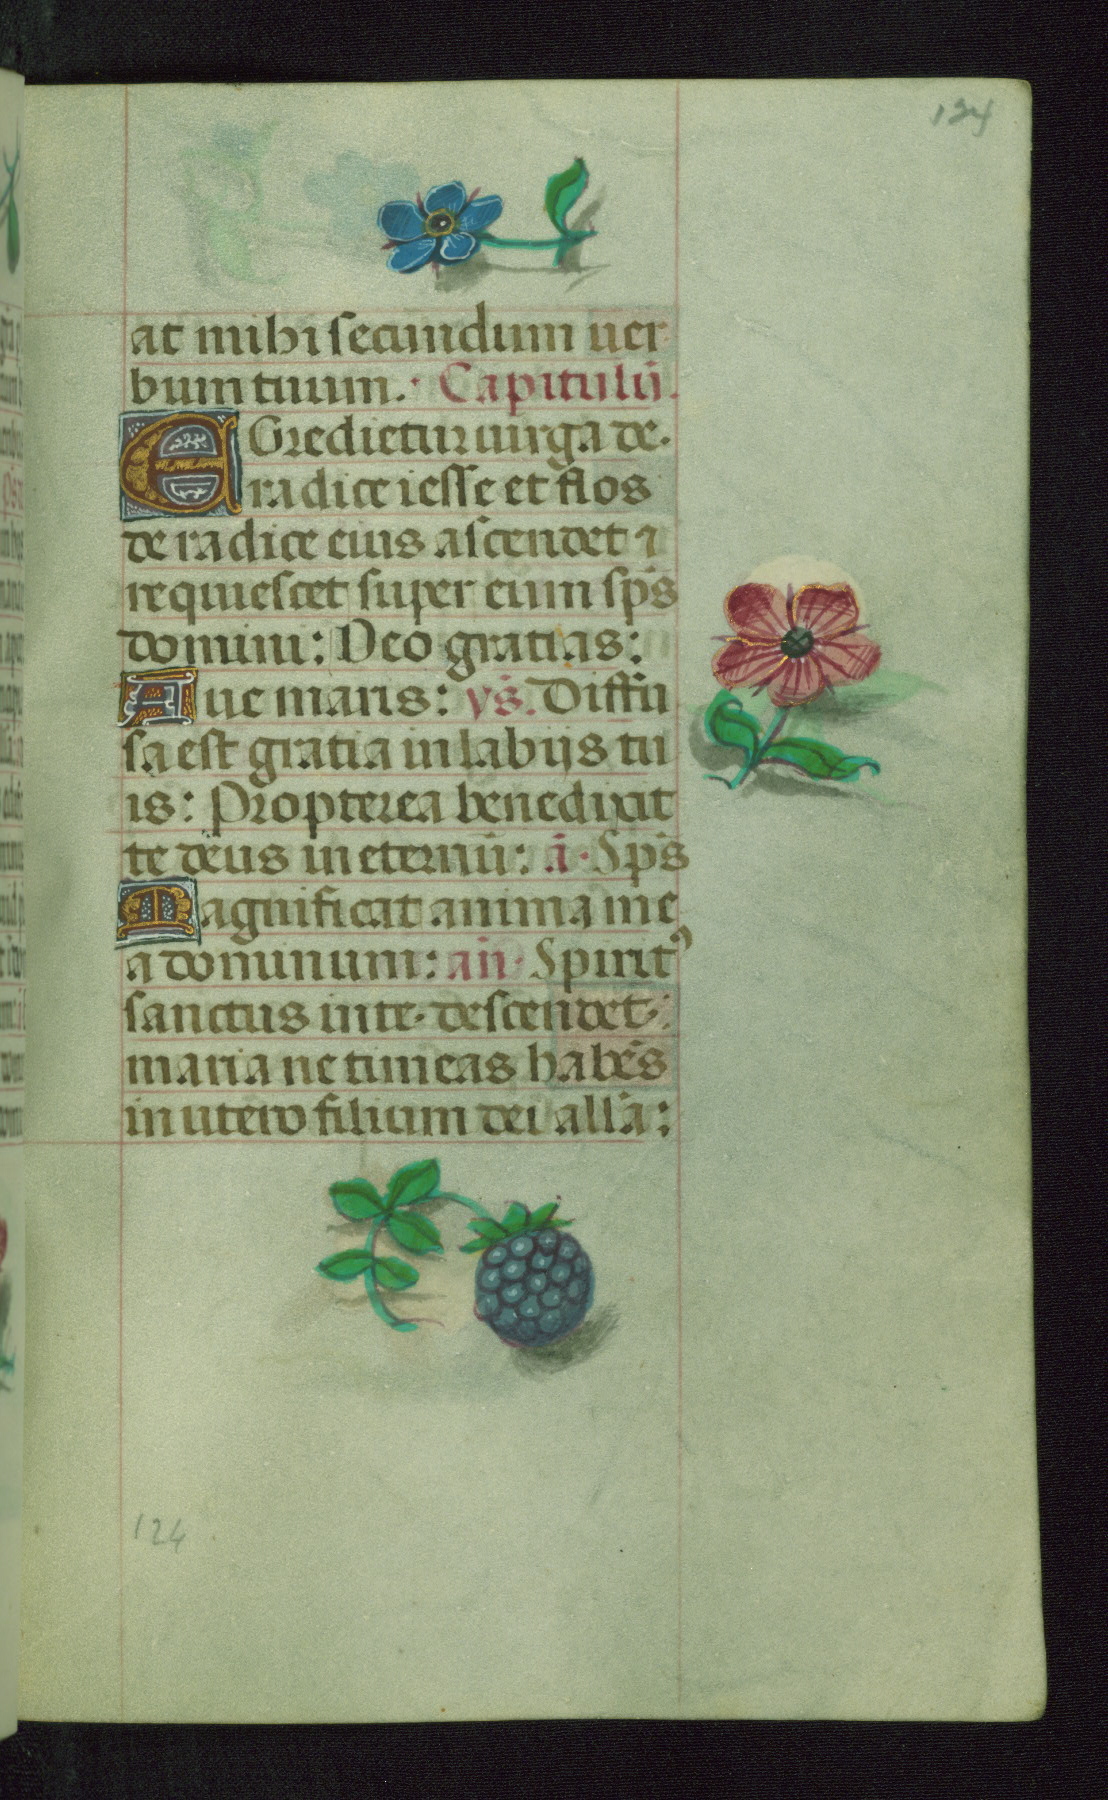 124
at mihi secundum uer
bum tuum. Capitulū.
EGredietur uirga de
radice iesse et flos
de radice eius ascendet ⁊
requiescet super eum sp̄s
domini: Deo gratias:
Aue maris: vs̄. Diffu
sa est gratia in labijs tu
is: Propterea benedixit
te deus in eternū: ā. Sp̄s
Magnificat anima me
a dominum: an̄. Spiritꝰ
sanctus in te descendet
maria ne timeas habēs
in utero filium dei all̄a:
124